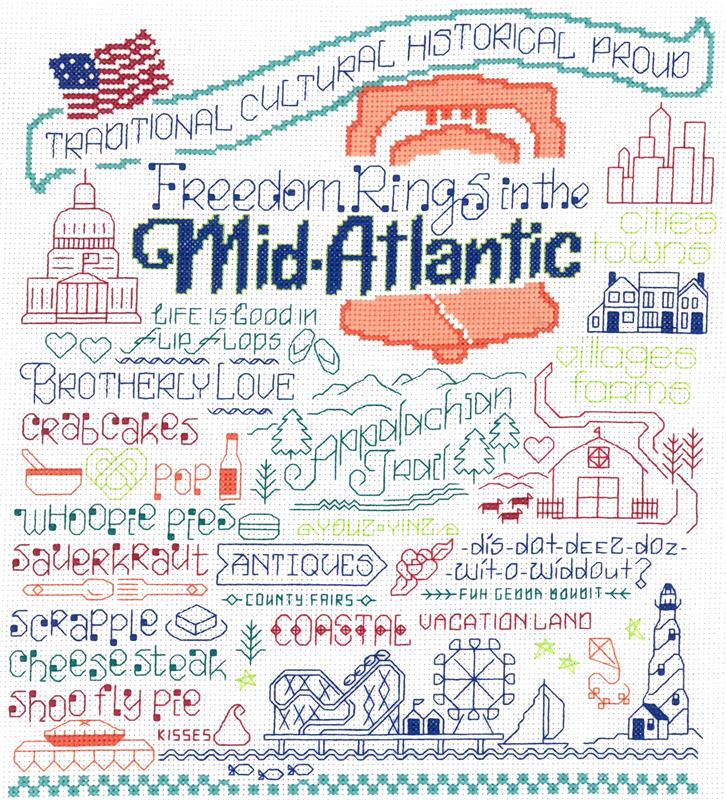 TRADITIONAL CULTURAL HISTORICAL PROUD
Freedom Rings in the
Mid-Atlantic
cities
towns
LIFE IS GOOD IN
FLIP FLOPS
villages
farms
BROTHERLY LOVE
Appalachian
Trail
CRABCAKES
POP
WHOOPIE PIES
YOUZ·YINZ
SAUERKRAUT
ANTIQUES
-dis-dat-deez-doz-
-wit-o-widdout?
COUNTY FAIRS
FUH GEDDA BOUDIT
SCRAPPLE
COASTAL VACATION LAND
CHEESESTEAK
SHOO FLY PIE
KISSES